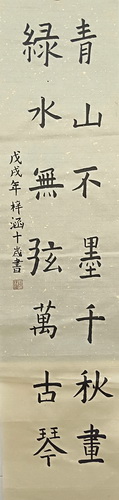 青山不墨千秋畫
綠水無弦萬古琴
戊戌年梓涵十歲書